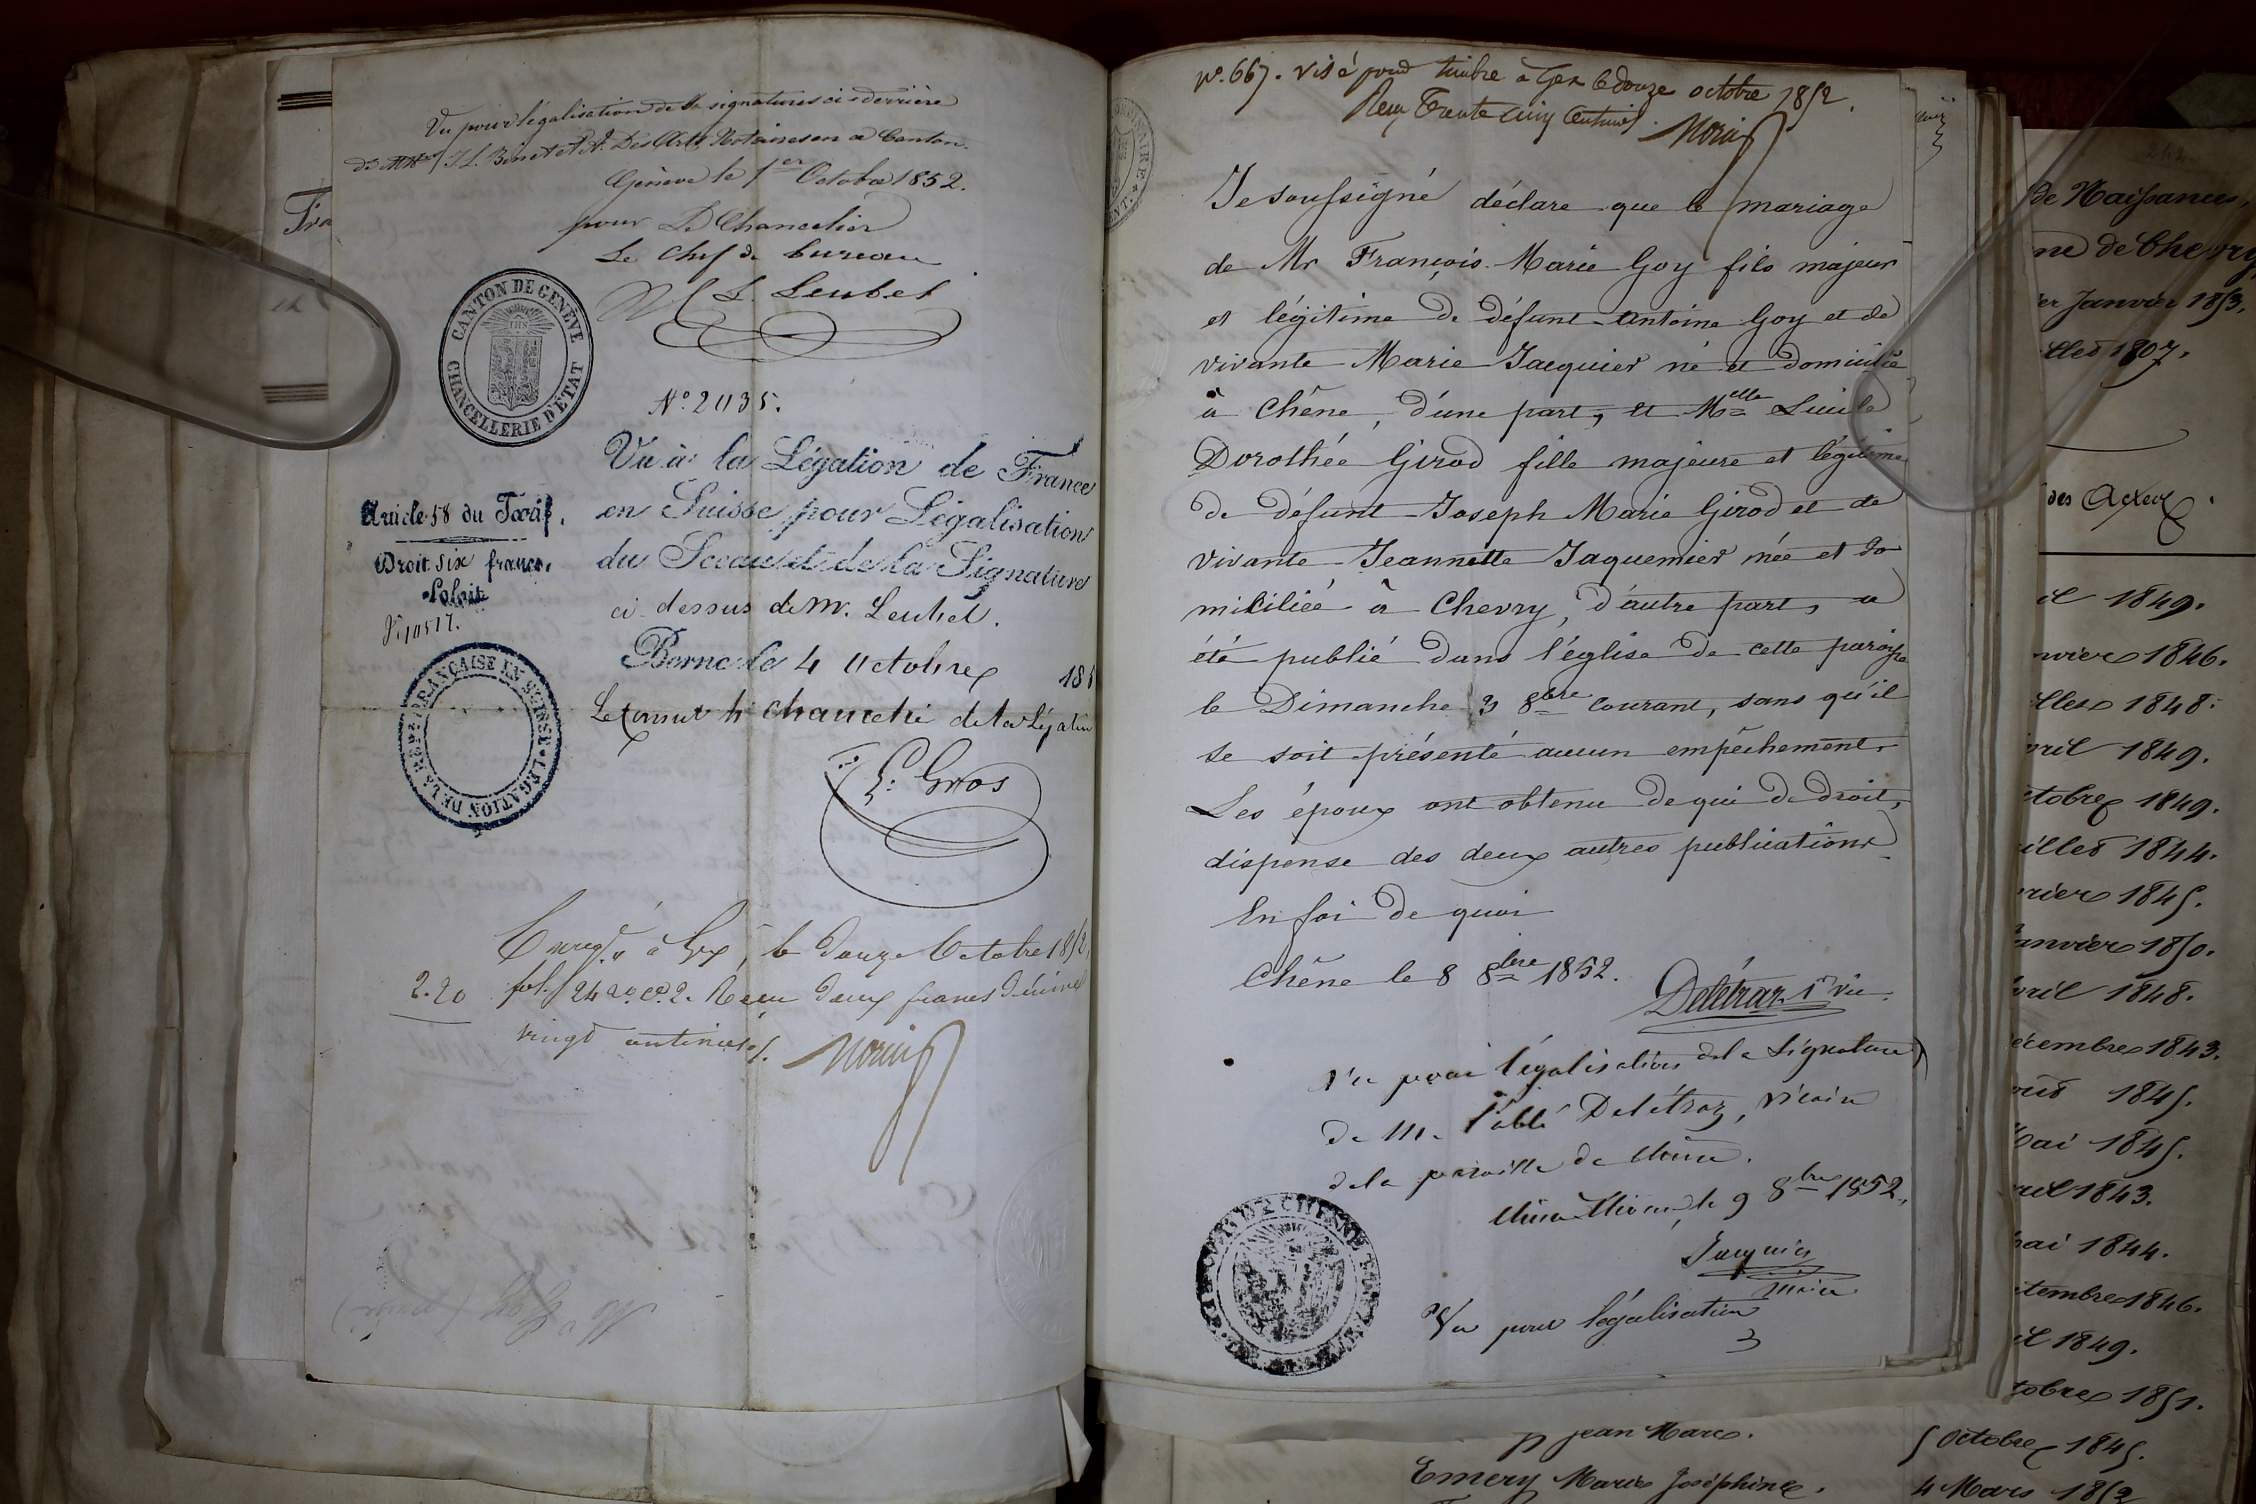 Vu pour légalisation de la signatures ci-derrière
de MMrs J. L. Binet et A. Des Arts, Notaires en ce Canton.
Genève le 1er Octobre 1852.
pour Le Chancelier
Le Chef de bureau
L. Leubel
CANTON DE GENÈVE
CHANCELLERIE D'ÉTAT
No. 2035.
Vu à la Légation de France
en Suisse pour Légalisation
du Sceau et de la Signature
ci dessus de Mr. Leubel.
Berne le 4 Octobre 185
Article 58 du Tarif.
Droit six francs.
LÉGATION DE LA RÉPUBLIQUE FRANÇAISE EN SUISSE
de la Légation
E. Gros
Enregé à Gex, le douze Octobre 1852,
2.20 fol. 124 Vo. Ce. 2. Reçu deux francs décimes
vingt centimes.
Morin
No. 667. Visé pour timbre à Gex le douze octobre 1852.
Reçu Trente cinq Centimes. Morin
Je soussigné déclare que le mariage
de Mr François Marie Goy fils majeur
et légitime de défunt Antoine Goy et de
vivante Marie Jacquier né et domicilié
à Chêne, d'une part, et Melle Lucile
Dorothée Girod fille majeure et légitime
de défunt Joseph Marie Girod et de
vivante Jeannette Jaquemier née et do
miciliée à Chevry, d'autre part, a
été publié dans l'église de cette paroisse
le Dimanche 3 8bre courant, sans qu'il
se soit présenté aucun empêchement.
Les époux ont obtenu de qui de droit,
dispense des deux autres publications.
En foi de quoi
Chêne le 8 8bre 1852.
Delétraz 1r Vic.
Vu pour légalisation de la Signature
de M. l'abbé Delétraz, Vicaire
de la paroisse de Chêne.
Chêne-Thônex, le 9 8bre 1852.
Jacquier
Maire
Vu pour légalisation
Fra
de Naissances,
ne de Chevry
er Janvier 1853,
des Actes
1849.
nvier 1846.
1848.
vril 1849.
ctobre 1849.
illet 1844.
vrier 1845.
anvier 1850.
vril 1848.
écembre 1843.
1845.
Mai 1845.
ril 1843.
mai 1844.
tembre 1846.
il 1849.
tobre 1851.
Jean Marc. 5 Octobre 1845.
Emery Marie Joséphine. 4 Mars 1852